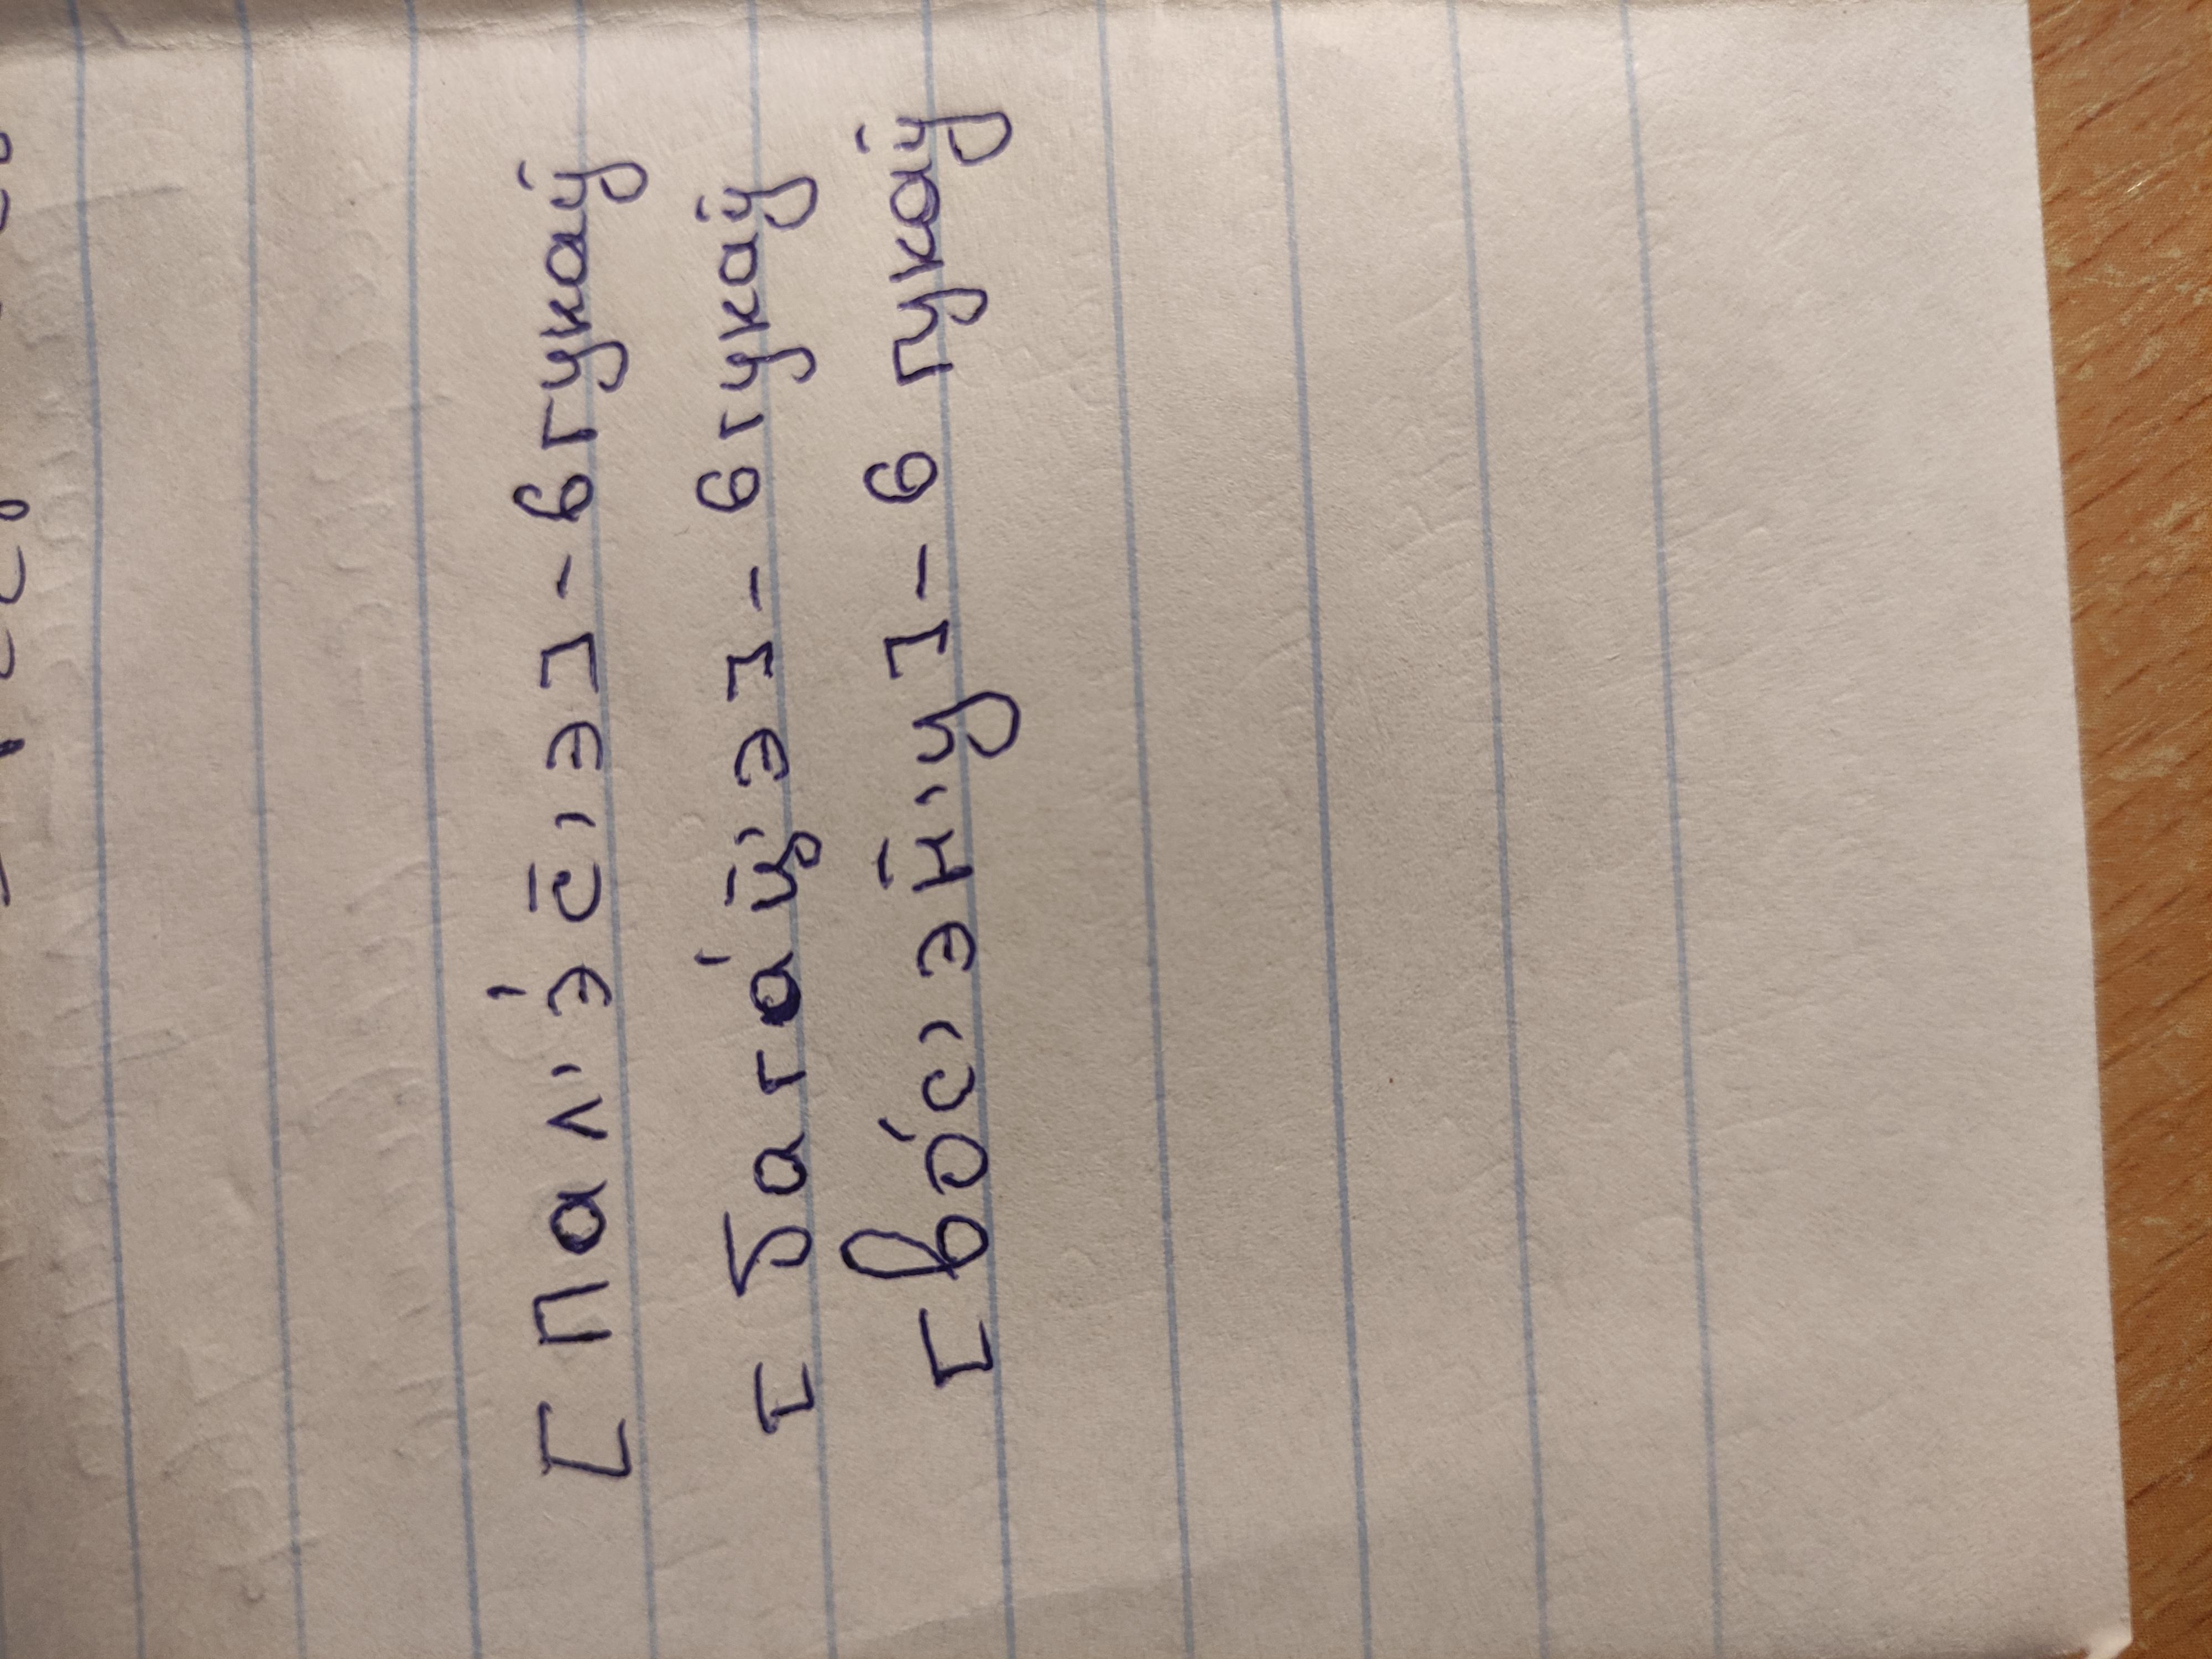 [пал'э́с̄'э] - 6 гукаў
[бага́ц̄'э] - 6 гукаў
[во́с'эн̄'у] - 6 гукаў